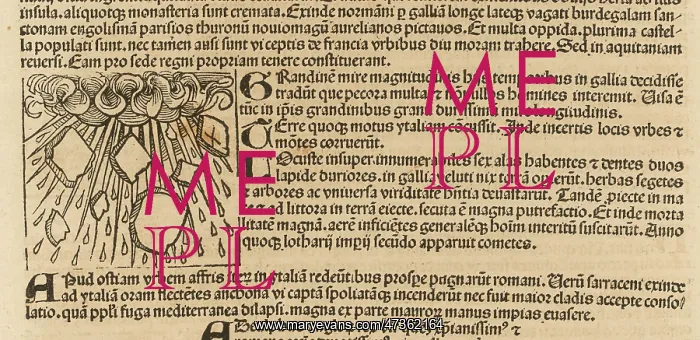 insula. aliquotqꝫ monasteria sunt cremata. Exinde normāni ꝑ galliā longe lateqꝫ vagati burdegalam san-
ctonam engolismā parisios thuronū nouiomagū aurelianos pictauos. Et multa oppida. plurima castel-
la populati sunt. nec tamen ausi sunt vi ceptis de francia vrbibus diu moram trahere. Sed in aquitaniam
reuersi. Eam pro sede regni propriam tenere constituerant.
GRandinē mire magnitudinis his temporibus in gallia decidisse
tradūt que pecora multa ⁊ nōnullos homines interemit. Uisa ē
tūc in ip̄is grandinibus grana durissimi longitudinis.
Terre quoqꝫ motus ytaliam cōcussit. Inde incertis locis vrbes ⁊
mōtes corruerūt.
LOcuste insuper innumerabiles sex alas habentes ⁊ dentes duos
lapide duriores. in gallia veluti nix terrā operuerūt. herbas segetes
⁊ arbores ac vniuersa viriditatē hn̄tia deuastarūt. Tandē ꝓiecte in ma
re ad littora in terrā eiecte. secuta ē magna putrefactio. Et inde morta
litatē magnā. aerē inficiētes generalēqꝫ hoīm interitū suscitarūt. Anno
quoqꝫ lotharij imꝑij secūdo apparuit cometes.
APud ostiam vrbem affris iter in ytaliā redeūtibus prospe pugnarūt romani. Uerū sarraceni exinde
ad ytaliā oram flectētes anchona vi captā spoliatāqꝫ incenderūt nec fuit maior cladis accepte conso/
latio. quā ꝙ ꝑ fuga mediterranea dilapsi. magna ex parte mauroꝝ manus impias euasere.
ME
PL
ME
PL
www.maryevans.com/47362164